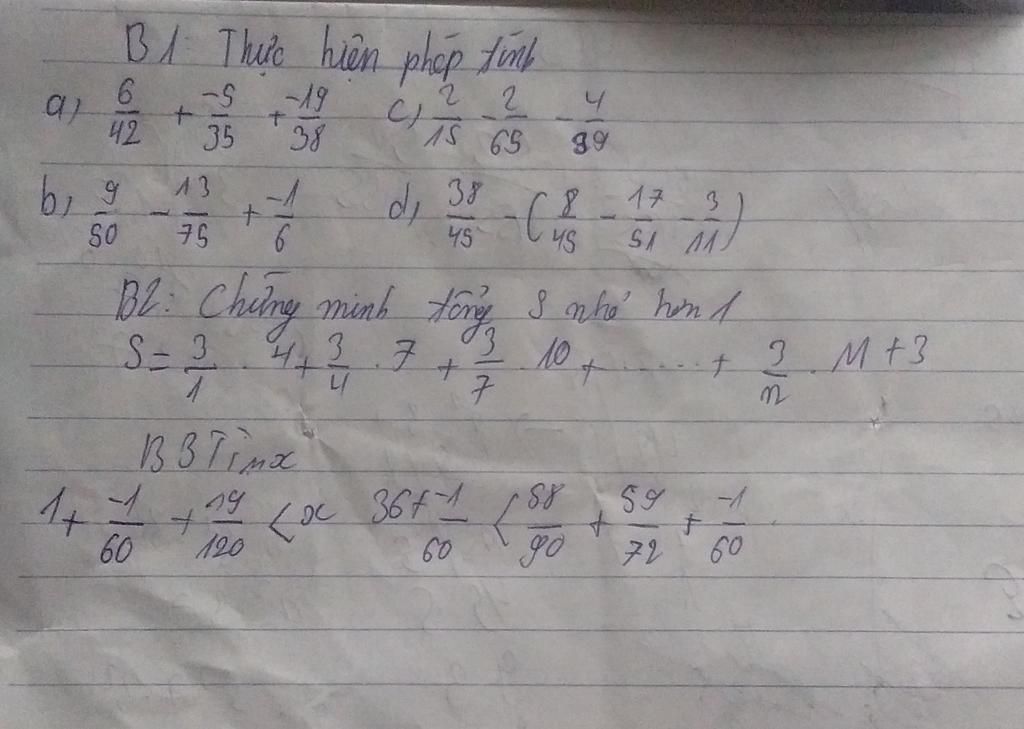 B1: Thực hiện phép tính
a, 6/42 + -5/35 + -19/38 c, 2/15 - 2/65 - 4/39
b, 9/50 - 13/75 + -1/6 d, 38/45 - (8/45 - 17/51 - 3/11)
B2: Chứng minh tổng S nhỏ hơn 1
S = 3/1 . 4 + 3/4 . 7 + 3/7 . 10 + ...... + 3/n . M + 3
B3 Tìm x
1 + -1/60 + 19/120 < x 36 + -1/60 < 58/90 + 59/72 + -1/60